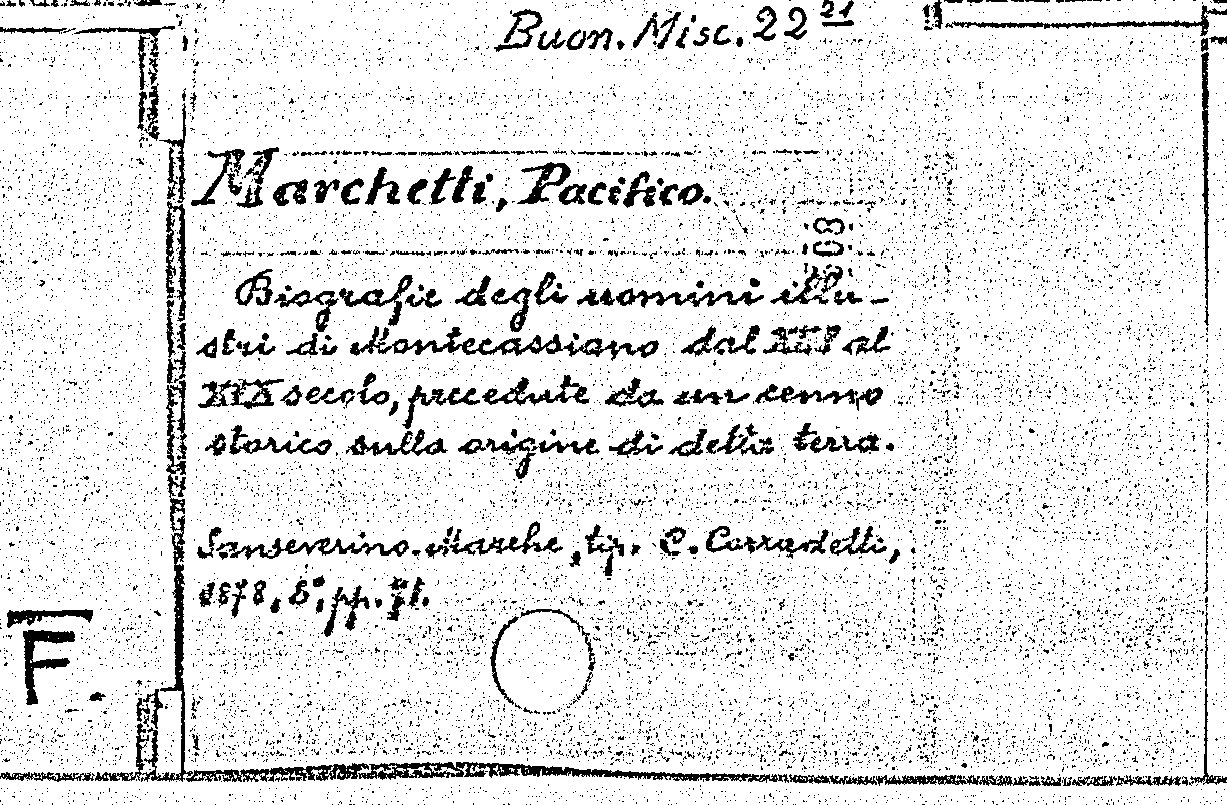 Buon. Misc. 22 21
Marchetti, Pacifico.
Biografie degli uomini illu-
stri di Montecassiano dal al
XIX secolo, precedute da un cenno
storico sulla origine di detta terra.
Sanseverino-Marche, tip. C. Corradetti,
1878, 8°, pp. 71.
F